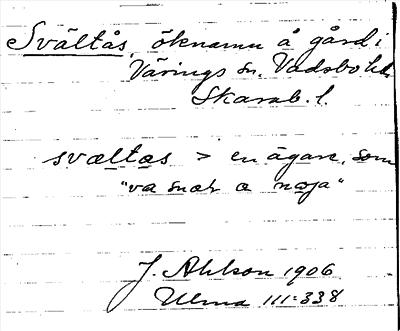 Svältås, öknamn å gård i
Värings sn, Vadsbo hd.
Skarab. l.
svæltas > en ägare, som
"va snæl a noja"
J. Ahlson 1906
Ulma 111:338